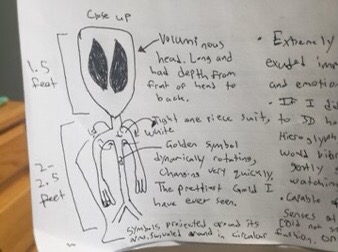 Close up
Voluminous
head. Long and
had depth from
front of head to
back.
1.5
feet
Tight one piece suit,
White
Golden symbol
dynamically rotating,
Changing very quickly.
The prettiest Gold I
have ever seen.
2-
2.5
feet
Symbols projected around its
and around in circular fashion,
• Extremely
exuded
and emotion
• IF I di
to JD ho
Hieroglyph
would
gently
watching
• Capable
Senses
Could not